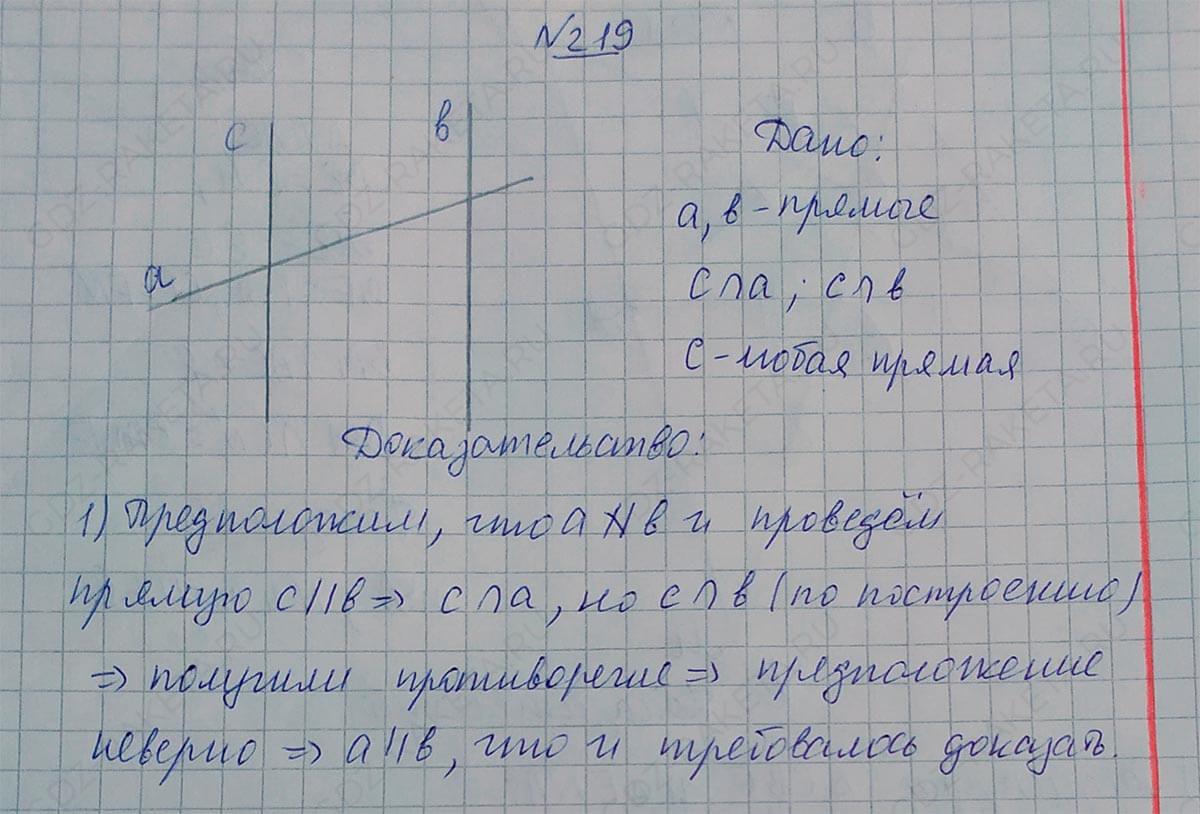 №219
с
в
а
Дано:
а, в - прямые
с∩а ; с∩в
с - любая прямая
Доказательство:
1) Предположим, что а ∦ в и проведём
прямую с||в => с∩а, но с∩в (по построению)
=> получили противоречие => предположение
неверно => а||в, что и требовалось доказать.